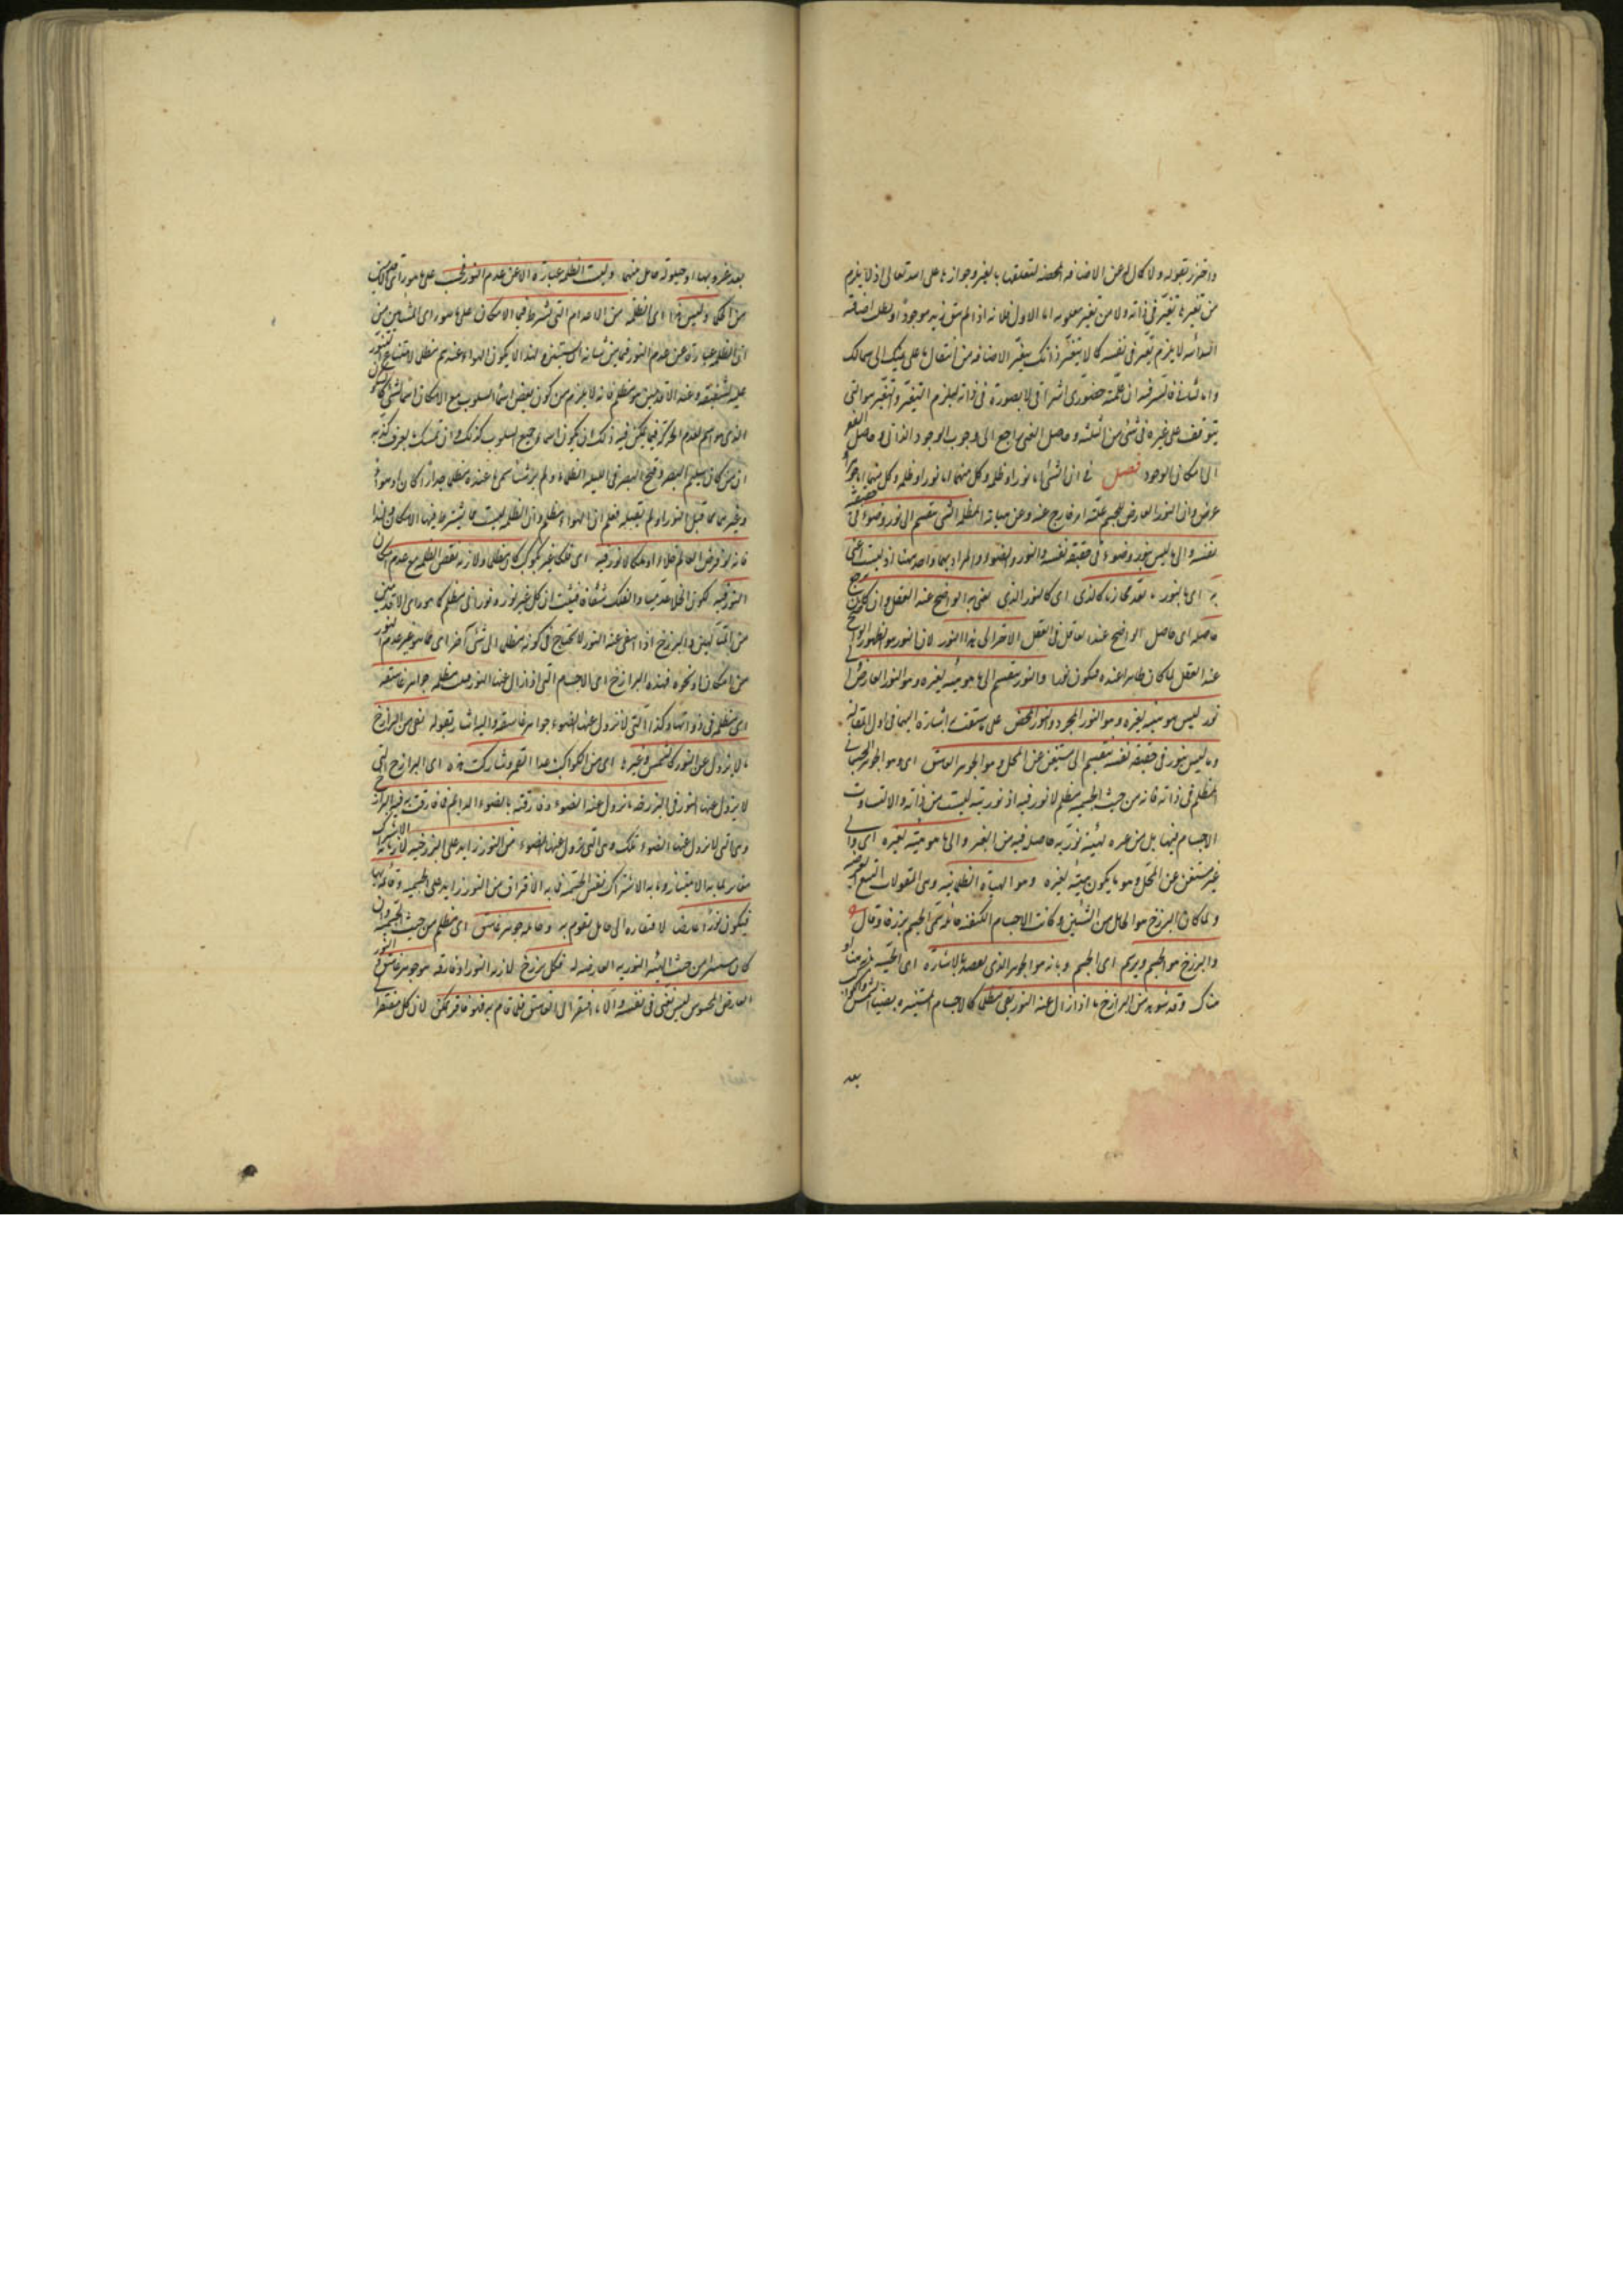 واحترز بقوله ولا كمال له عن الاضافه المحضه لتعلقها بالغير وجوازها على الله تعالى اذ لا يلزم
من تغيرها تغير فى ذاته ولا من تغير معلومه اما الاول فلانه اذا لم يبق زيد موجودا وبطلت اضافة
المبدأ اليه لا يلزم تغير فى نفسه كما لا يتغير ذاتك بتغير الاضافه من انتقال ما على يمينك الى شمالك
واما الثانى فليس فيه ان علمه حضورى اشراقى لا بصورة فى ذاته ليلزم التغير والفقير هو الذى
يتوقف على غيره فى شئ من الثلثه وحاصل الغنى راجع الى وجوب الوجود الذاتى وحاصل الفقر
الى امكان الوجود فصل فى ان الشئ اما نور او ظلمة وكل منهما اما نور او ظلمه وكل منهما اما جوهر او
عرض وان النور العارض للجسم علته امر خارج عنه وعن هيأته المظلمه الشئ ينقسم الى نور وضوء فى حقيقة
نفسه والى ما ليس بنور وضوء فى حقيقة نفسه والنور والضوء المراد بهما واحد ههنا اذ لست اعنى
به اى بالنور ما يعد مجازيا كالذى اى كالنور الذى يعنى به الواضح عند العقل وان كان يرجع
حاصله اى حاصل الواضح عند العاقل فى العقل الاخر الى هذا النور لان النور هو الظهور والواضح
عند العقل لما كان ظاهرا عنده فيكون نورا والنور ينقسم الى ما هو هيئة لغيره وهو النور العارض والى
نور ليس هو هيئه لغيره وهو النور المجرد والنور المحض على ما سبقت اشارة اليهما فى اول المقالة
وما ليس بنور فى حقيقة نفسه ينقسم الى مستغن عن المحل وهو الجوهر الغاسق اى وهو الجوهر الجسمانى
المظلم فى ذاته فانه من حيث الجسميه مظلم لا نور فيه اذ نوريته ليست من ذاته والا لتساوت
الاجسام فيها بل من غيره لهيئة نوريه حاصله فيه من الغير والى ما هو هيئة لغيره اى والى
غير مستغن عن المحل وهو ما يكون هيئة لغيره وهو الهيأة الظلمانيه وهى المقولات التسع العرضيه
ولما كان البرزخ هو الحايل بين الشيئين وكانت الاجسام الكثيفه حايله سمى الجسم برزخا وقال
والبرزخ هو الجسم ويرسم اى الجسم وبانه هو الجوهر الذى يقصد بالاشارة اى الحسيه
هناك وقد شوهد من البرازخ ما اذا زال عنه النور بقى مظلما كالاجسام المستنيره بضياء الشمس والكواكب
بعد
بعد غروبها او حيلولة حايل بينهما وليست الظلمه عبارة الا عن عدم النور فحسب على ما هو رأى الاقدمين
من الحكماء وليس هذا اى الظلمة من الاعدام التى يشترط فيها الامكان على ما هو رأى المشائين من
ان الظلمه عبارة عن عدم النور فيما من شأنه ان يستنير ولهذا لا يكون الهواء عندهم مظلما لامتناع التنور
عليه لشفيفه وعند الاقدمين هو مظلم فانه لا يلزم من كون بعض اسماء السلوب مع الامكان اسما لشئ كالسكون
الذى هو اسم لعدم الحركه فيما يمكن فيه ذلك ان يكون اسماء جميع السلوب كذلك وان تمسك بالعرف كذبه
ان من كان سليم البصر وفتح البصر فى الليله الظلماء ولم ير شئا سمى ما عنده مظلما جدارا كان او هواء
وغيرهما مما قبل النور او لم يقبله فعلم ان الهواء مظلم وان الظلمه ليست مما يشترط فيها الامكان ولهذا
فانه لو فرض العالم خلاء او فلكا لا نور فيه اى فلكا غير مكوكب كان مظلما ولازمه نقض الظلمه مع عدم امكان
النور فيه لكون الخلاء عدميا والفلك شفافا فثبت ان كل غير نور ونورانى مظلم كما هو رأى الاقدمين
من المتألهين والبرزخ اذا انتفى عنه النور لا يحتاج فى كونه مظلما الى شئ آخر اى مما هو غير عدم النور
من امكان او نحوه فهذه البرازخ اى الاجسام التى اذا زال عنها النور بقيت مظلمه جواهر غاسقه
اى مظلمه فى ذواتها وكذا التى لا يزول عنها الضوء جواهر غاسقه واليه اشار بقوله بقى من البرازخ
ما لا يزول عنه النور كالشمس وغيرها اى من الكواكب عدا القمر وشاركت هذه اى البرازخ التى
لا يزول عنها النور فى البرزخيه ما يزول عنه الضوء وفارقته بالضوء الدائم فما فارقت به هذه البرازخ
وهى التى لا يزول عنها الضوء تلك وهى التى يزول عنها الضوء من النور زايد على البرزخيه لان ما به الاشتراك
مغاير لما به الامتياز وما به الاشتراك نفس الجسميه فما به الافتراق من النور زايد على الجسميه وقائم بها
فيكون نورا عارضا لافتقاره الى حامل يقوم به وحامله جوهر غاسق اى مظلم من حيث الجسميه وان
كان مستنيرا من حيث الهيئه النوريه العارضه له فكل برزخ لازمه النور او فارقه هو جوهر غاسق والنور
العارض المحسوس ليس بغنى فى نفسه والا ما افتقر الى الغاسق فلما قام به فهو فاقر ممكن لان كل مفتقر